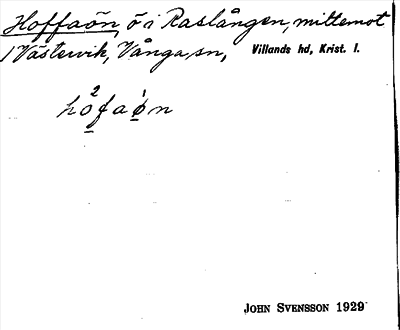 Hoffaön, ö i Raslången, mittemot
/ Västervik, Vånga sn, Villands hd, Krist. l.
ho²faǿn
JOHN SVENSSON 1929